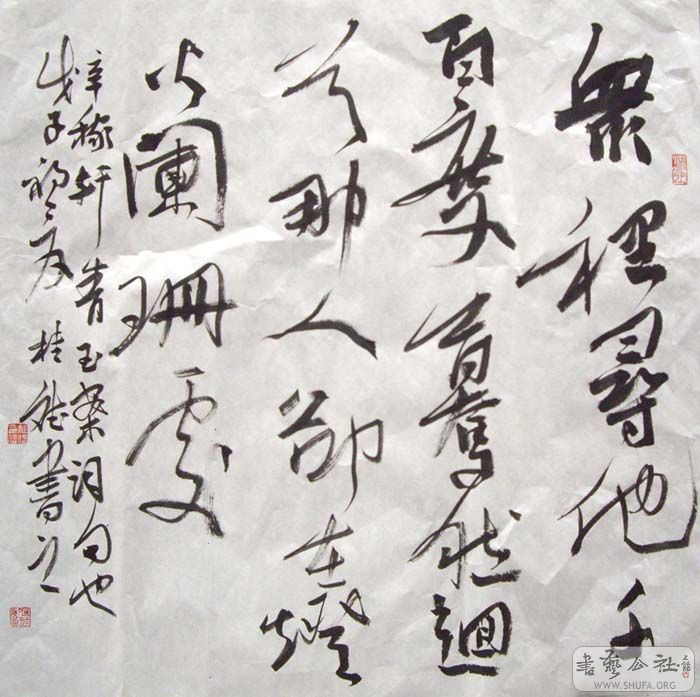 衆裡尋他千
百度驀然迴
首那人卻在燈
火闌珊處
辛稼軒青玉案詞句也
戊子初夏桂書
書藝公社
WWW.SHUFA.ORG